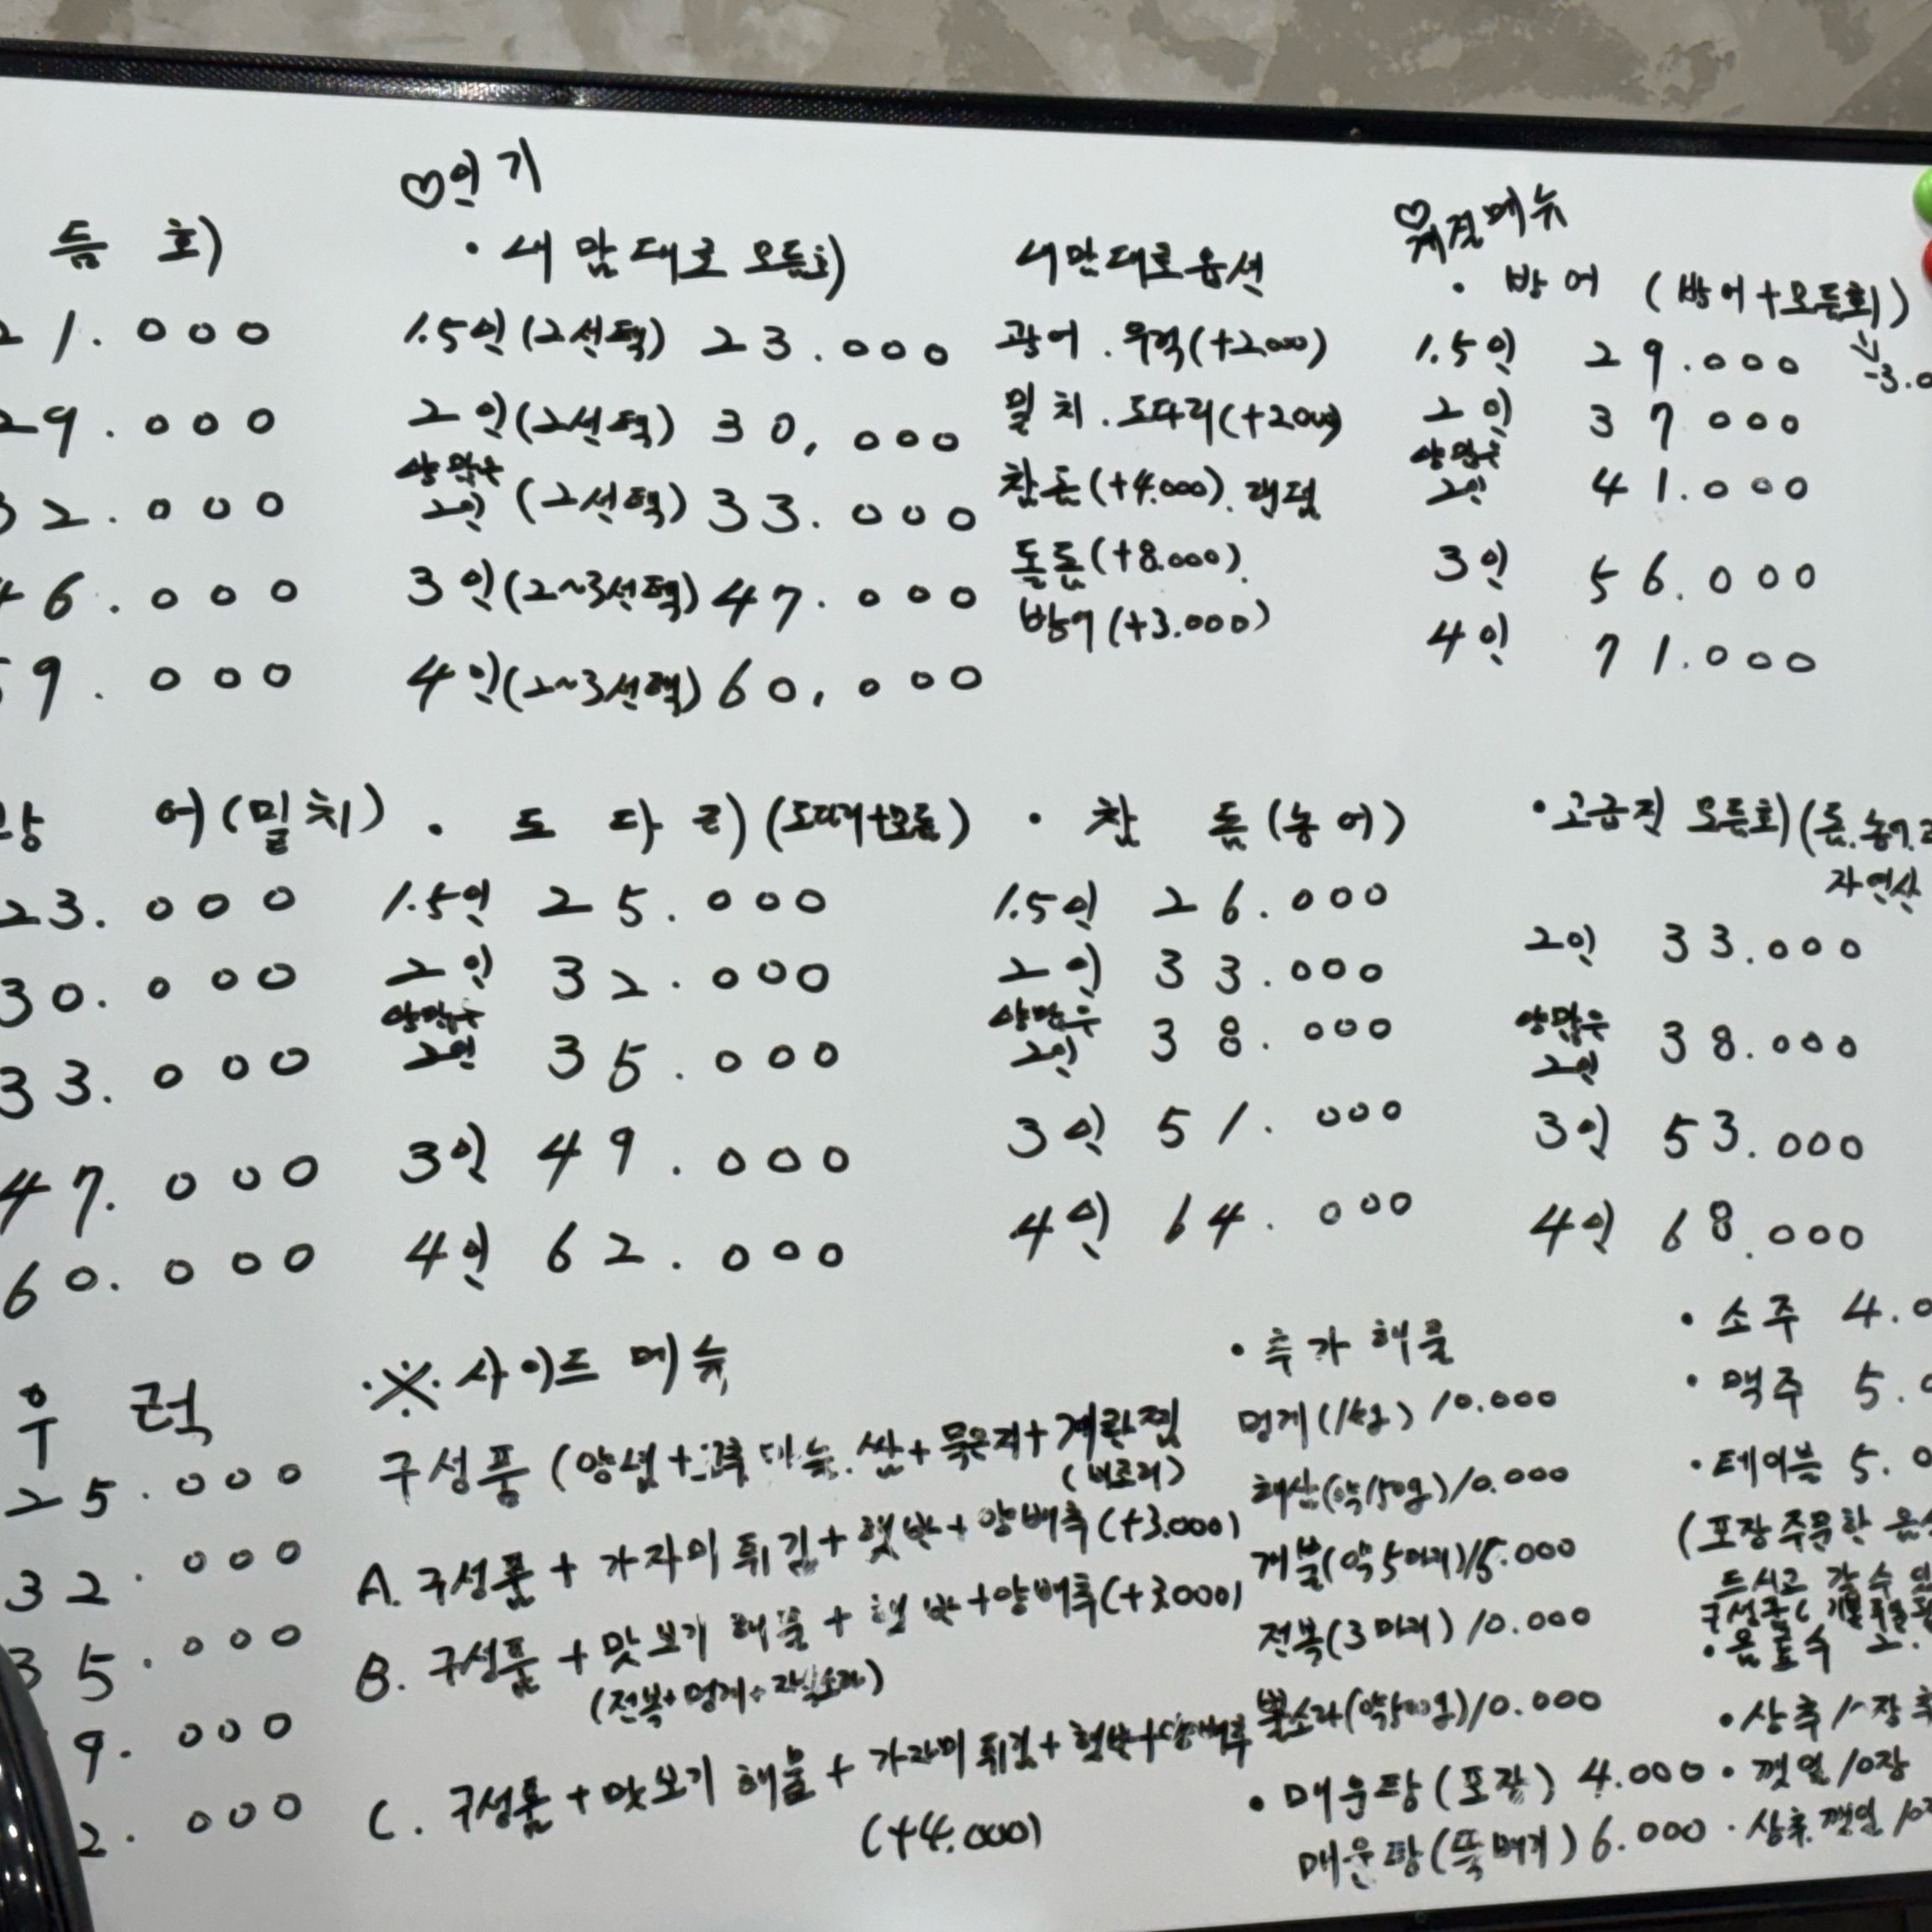 ♡인기
듬 회)
21.000
29.000
32.000
46.000
59.000
· 내 맘 대로 모듬회)
1.5인(2선택) 23.000
2인(2선택) 30,000
양많은
2인 (2선택) 33.000
3인(2~3선택) 47.000
4인(2~3선택) 60,000
내맘대로옵션
광어 . 우럭(+2.000)
밀치 . 도다리(+2.000)
참돔(+4.000). 랜덤
돌돔(+8.000).
방어(+3.000)
♡
계절메뉴
· 방어 (방어+모듬회)
↓
-3.0
1.5인 29.000
2인 37 000
양많은
2인 41.000
3인 56.000
4인 71.000
어(밀치)
23.000
30.000
33.000
47.000
60.000
· 도 다 리 (도다리+모듬)
1.5인 25.000
2인 32.000
양많은
2인 35.000
3인 49.000
4인 62.000
· 참 돔 (농어)
1.5인 26.000
2인 33.000
양많은
2인 38.000
3인 51.000
4인 64.000
· 고급진 모듬회 (돔.농어.
자연산
2인 33.000
양많은
2인 38.000
3인 53.000
4인 68.000
우 럭
25.000
32.000
35.000
9.000
2.000
※ 사이드 메뉴
구성품 (양념+고추 마늘.쌈+묵은지+계란찜
A. 구성품 + 가자미 튀김 + 햇반 + 양배추(+3.000)
B. 구성품 + 맛보기 해물 + 햇반 +양배추(+3.000)
(전복+멍게+
C. 구성품 + 맛보기 해물 + 가자미 튀김 + 햇반+양배추
(+4.000)
· 추가 해물
멍게(1kg) 10.000
해삼(약150g) 10.000
개불(약5마리) 15.000
전복(3마리) 10.000
뿔소라(약500g) 10.000
· 매운탕(포장) 4.000
매운탕(뚝배기) 6.000
· 소주 4.0
· 맥주 5.0
· 테이블 5.0
(포장주문한 음식
드시고 갈 수 있
· 음료수 2.
· 상추 1
· 깻잎 10장
· 상추.깻잎 10장